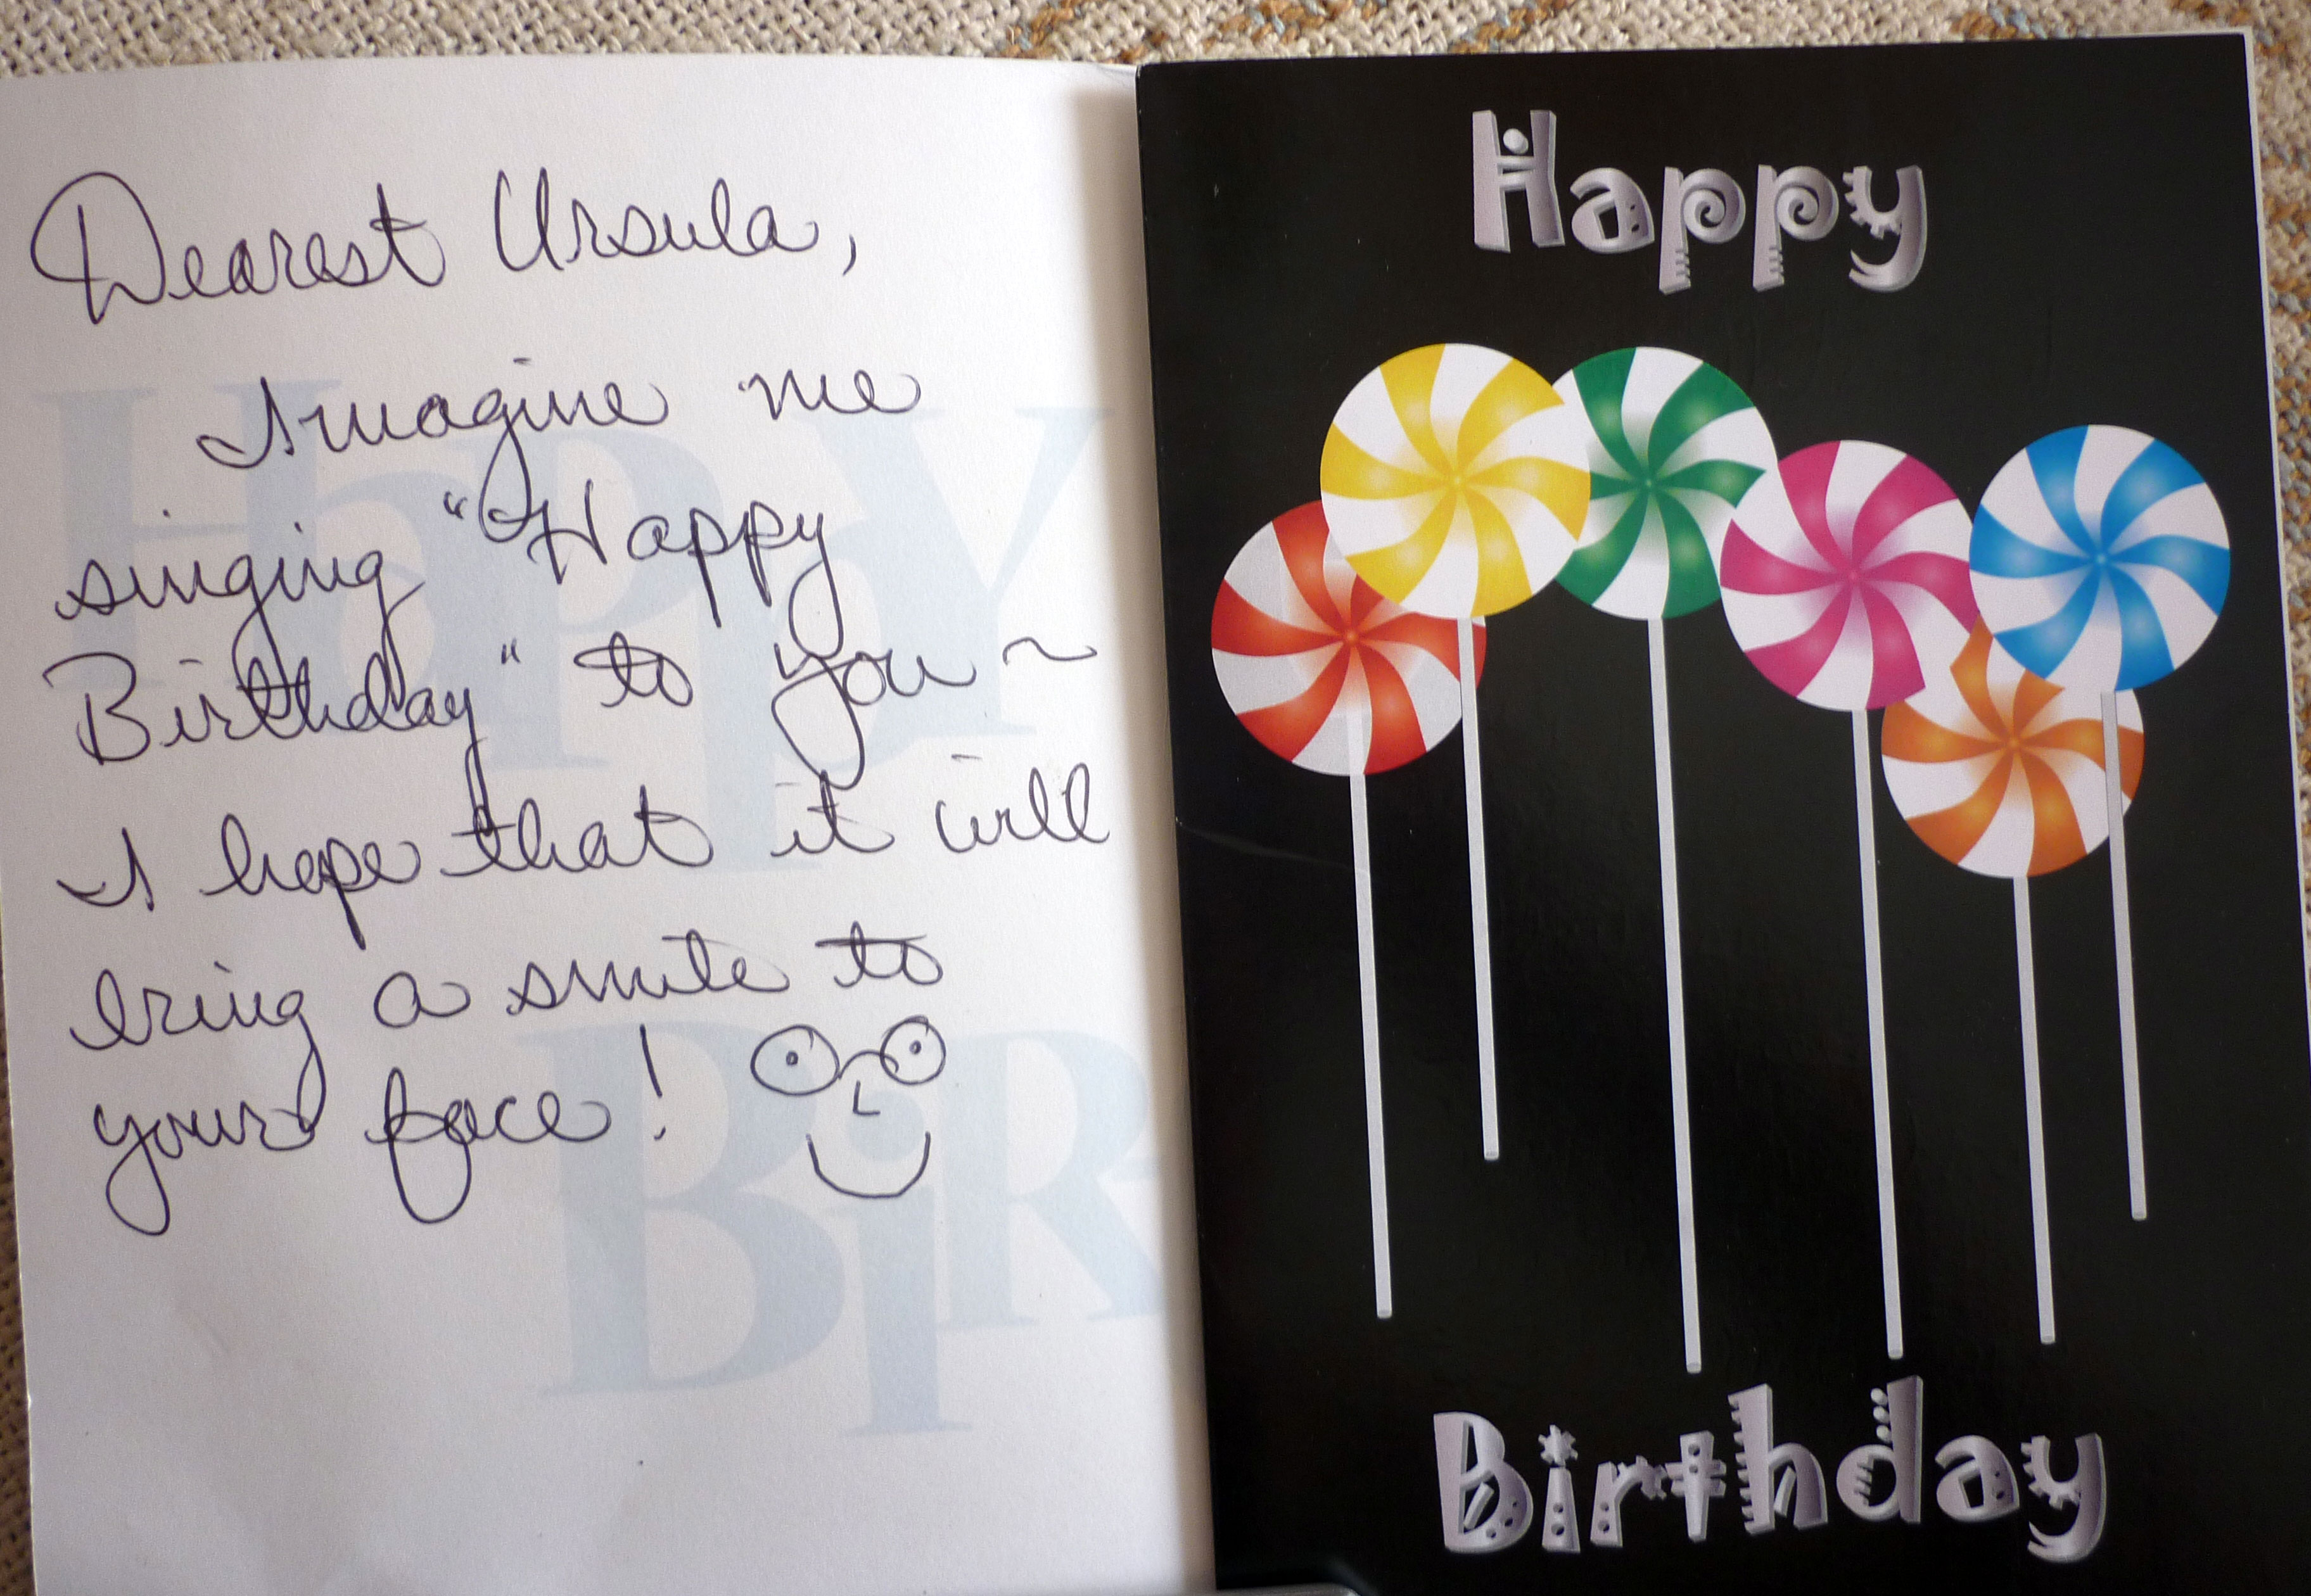 Dearest Ursula,
Imagine me
singing "Happy
Birthday" to you ~
I hope that it will
bring a smile to
your face!
HAPPY
BIR
Happy
Birthday